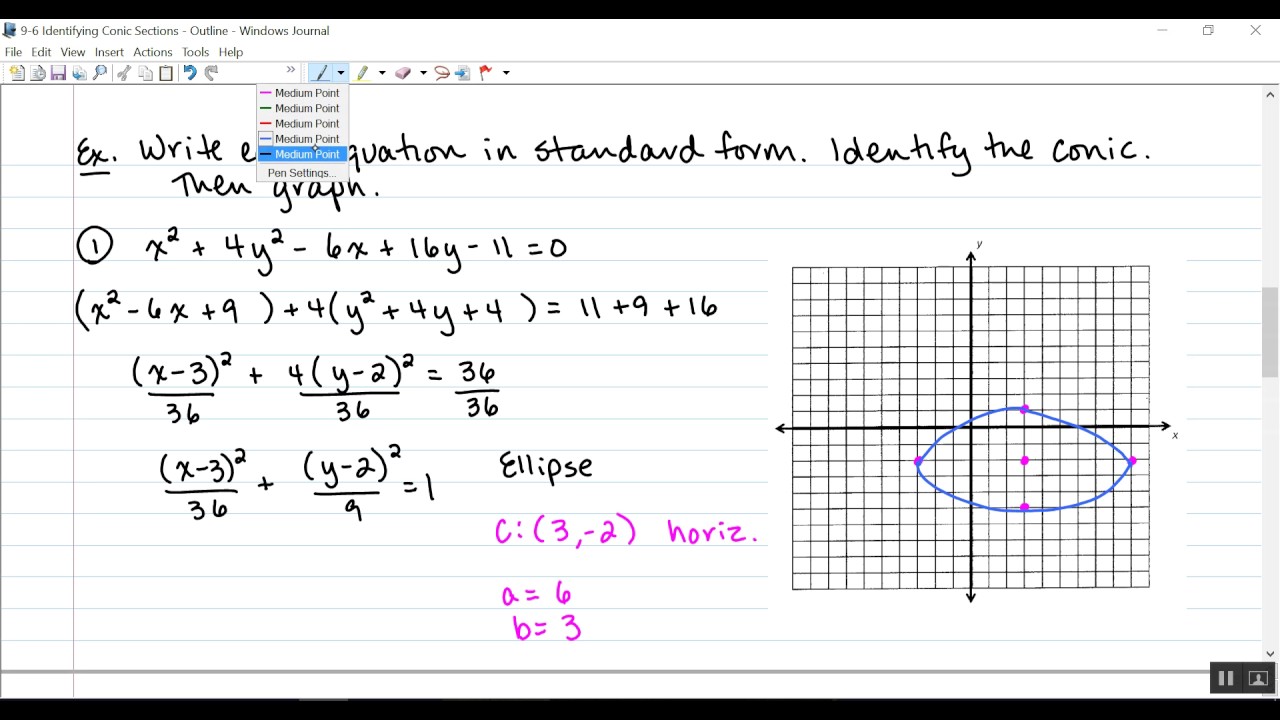 9-6 Identifying Conic Sections - Outline - Windows Journal
File Edit View Insert Actions Tools Help
Medium Point
Medium Point
Medium Point
Medium Point
Medium Point
Pen Settings...
Ex. Write e quation in standard form. Identify the conic.
Then graph.
① x² + 4y² - 6x + 16y - 11 = 0
(x² - 6x + 9 ) + 4(y² + 4y + 4 ) = 11 + 9 + 16
(x-3)²/36 + 4(y-2)²/36 = 36/36
(x-3)²/36 + (y-2)²/9 = 1
Ellipse
C: (3,-2) horiz.
a = 6
b = 3
y
x